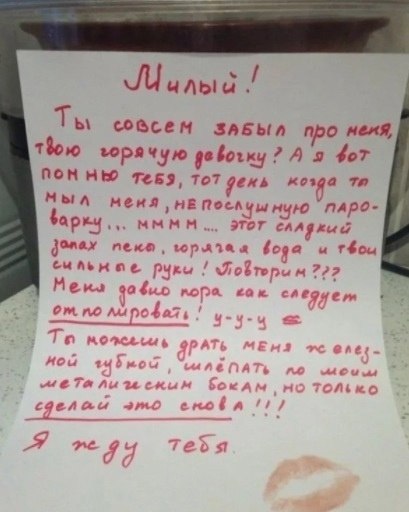 Милый!
Ты совсем забыл про меня,
твою горячую девочку? А я вот
помню тебя, тот день когда ты
мыл меня, непослушную паро-
варку... мммм.... этот сладкий
запах пены, горячая вода и твои
сильные руки! Повторим???
Меня давно пора как следует
отполировать! у-у-у
Ты можешь драть меня желез-
ной губкой, шлёпать по моим
металическим бокам, но только
сделай это снова!!!
Я жду тебя.